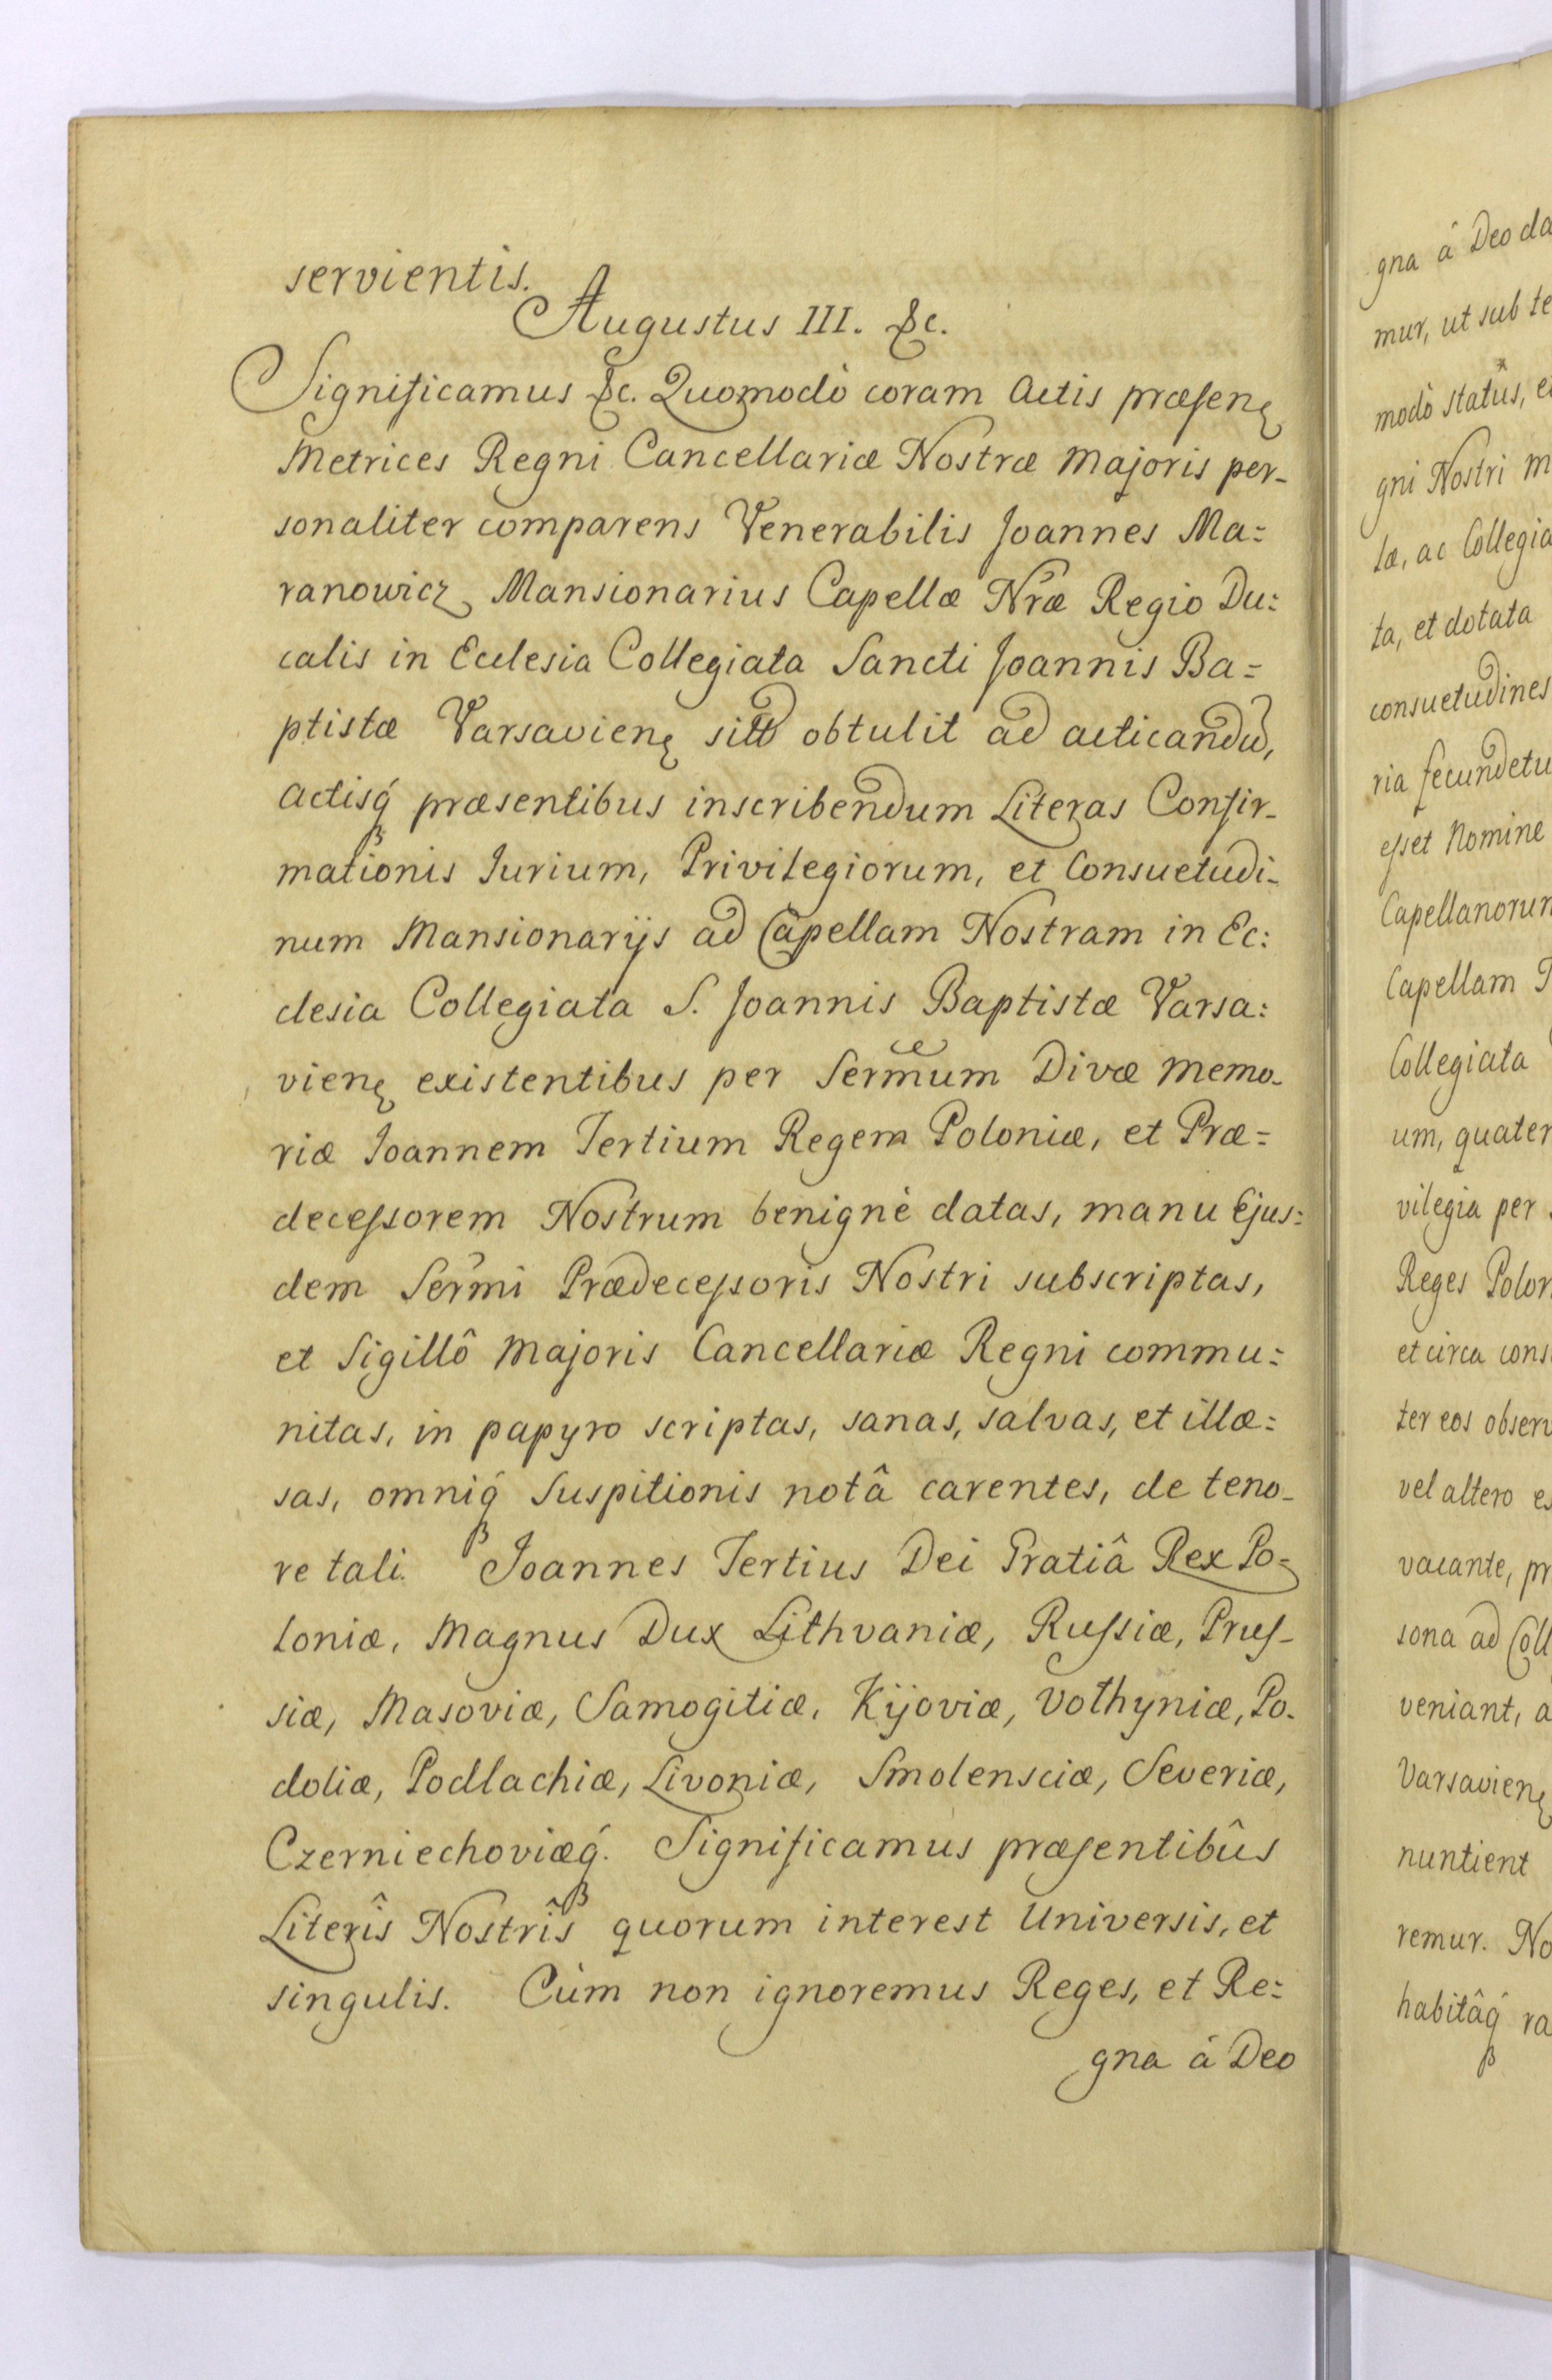 servientis.
Augustus III. &c.
Significamus &c. Quomodò coram Actis præsenę
Metrices Regni Cancellariæ Nostræ Majoris per-
sonaliter comparens Venerabilis Joannes Ma=
ranowicz Mansionarius Capellæ Nræ Regio Du=
calis in Ecclesia Collegiata Sancti Joannis Ba=
ptistæ Varsavienę obtulit ad acticandū,
Actisq́ præsentibus inscribendum Literas Confir-
mationis Jurium, Privilegiorum, et Consuetudi-
num Mansionarijs ad Capellam Nostram in Ec=
clesia Collegiata S. Joannis Baptistæ Varsa=
vienę existentibus per Sermum Divæ Memo-
riæ Joannem Tertium Regem Poloniæ, et Præ=
decessorem Nostrum benignè datas, manu Ejus=
dem Sermi Prædecessoris Nostri subscriptas,
et Sigillô Majoris Cancellariæ Regni commu=
nitas, in papyro scriptas, sanas, salvas, et illæ=
sas, omniq́ Suspitionis notâ carentes, de teno-
re tali. Joannes Tertius Dei Gratiâ Rex Po-
loniæ, Magnus Dux Lithvaniæ, Russiæ, Prus-
siæ, Masoviæ, Samogitiæ, Kijoviæ, Volhyniæ, Po-
doliæ, Podlachiæ, Livoniæ, Smolensciæ, Severiæ,
Czerniechoviæq́. Significamus præsentibûs
Literîs Nostrîs quorum interest Universis, et
singulis. Cùm non ignoremus Reges, et Re=
gna á Deo
gna â Deo da
mur, ut sub te
modò statûs, e
gni Nostri M
læ, ac Collegia
ta, et dotata
consuetudines
ria fecundetu
esset Nomine
Capellanorum
Capellam
Collegiata
um, quater
vilegia per
Reges Polon
et circa cons
ter eos observ
vel altero es
vacante, pr
sona ad Coll
veniant, a
Varsavienę
nuntient
remur. No
habitâq́ ra